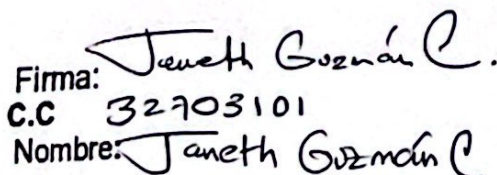 Firma: Janeth Guzmán C.
C.C 32703101
Nombre: Janeth Guzmán C